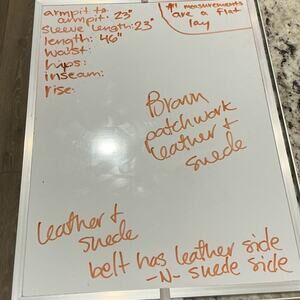 armpit to
armpit: 23"
sleeve length: 23"
length: 46"
waist:
hips:
inseam:
rise:
measurements
are a flat
lay
Brown
patchwork
leather +
suede
leather +
suede
belt has leather side
-N- suede side